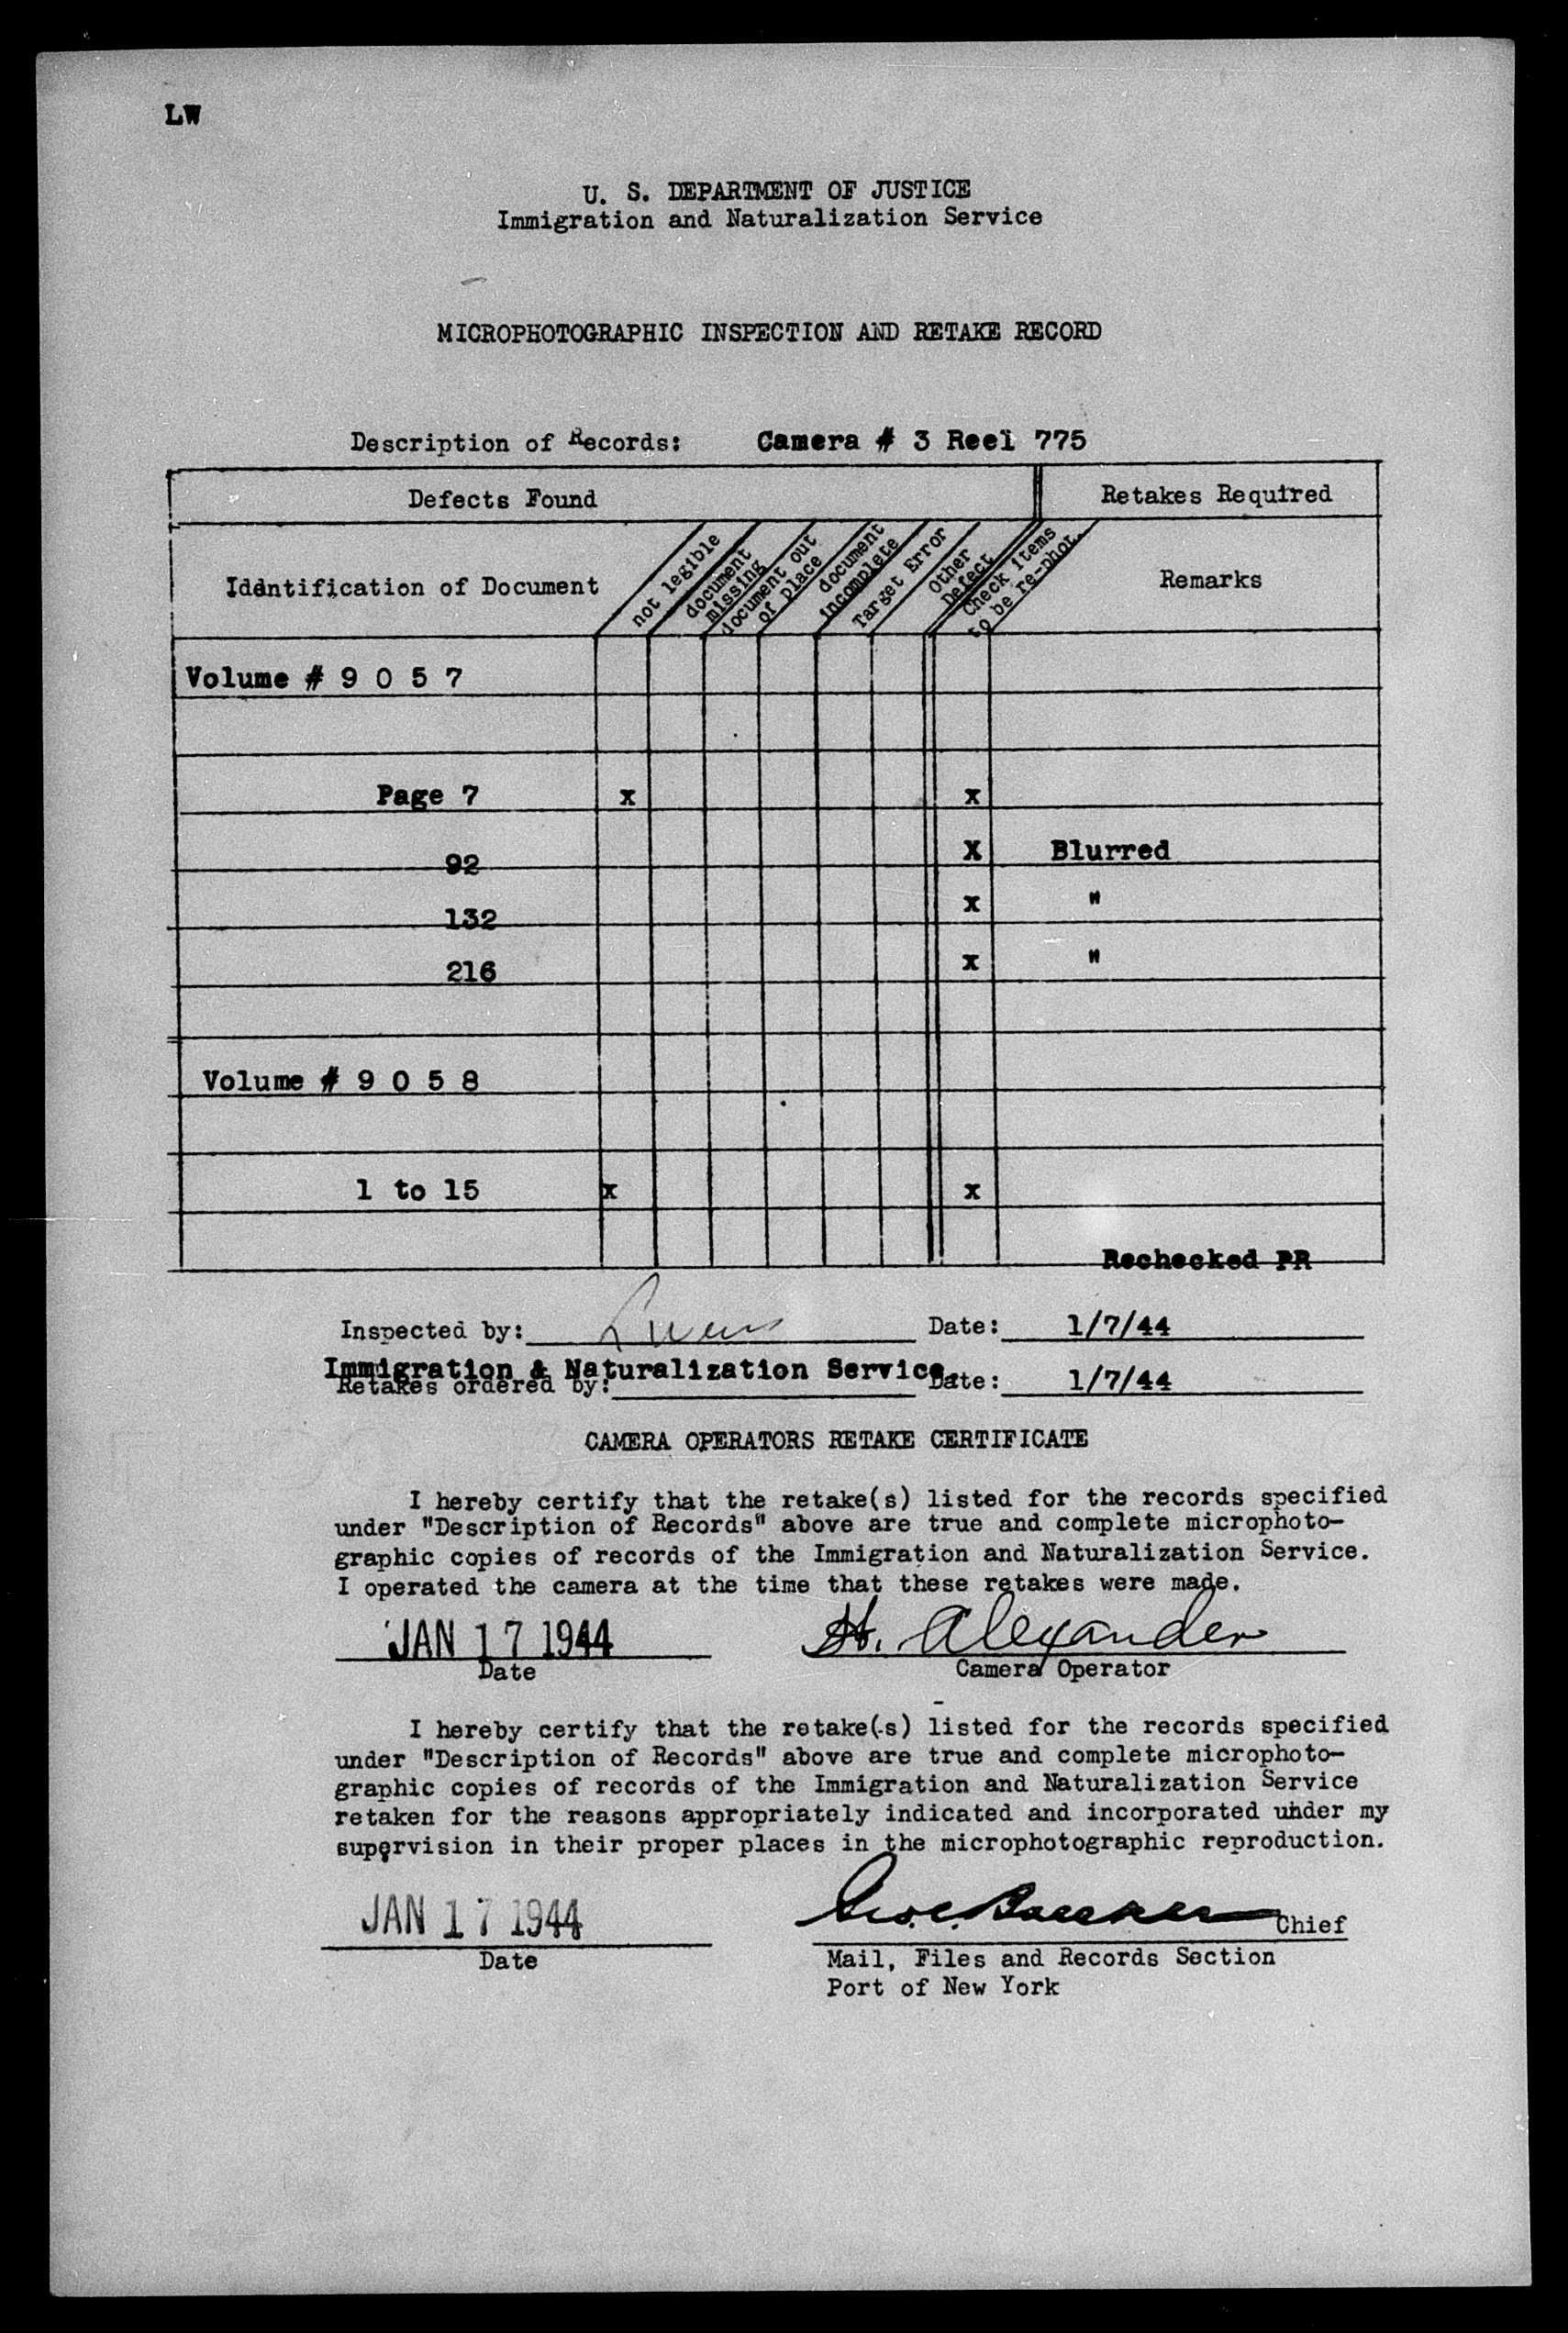 LW
U. S. DEPARTMENT OF JUSTICE
Immigration and Naturalization Service
MICROPHOTOGRAPHIC INSPECTION AND RETAKE RECORD
Description of Records: Camera # 3 Reel 775
Defects Found Retakes Required
Identification of Document not legible document missing document out of place document incomplete Target Error Other Defect Check items to be re-phot. Remarks
Volume # 9 0 5 7
Page 7 x x
92 X Blurred
132 x "
216 x "
Volume # 9 0 5 8
1 to 15 x x
Rechecked PR
Inspected by: Date: 1/7/44
Immigration & Naturalization Service.
Retakes ordered by: Date: 1/7/44
CAMERA OPERATORS RETAKE CERTIFICATE
I hereby certify that the retake(s) listed for the records specified
under "Description of Records" above are true and complete microphoto-
graphic copies of records of the Immigration and Naturalization Service.
I operated the camera at the time that these retakes were made.
JAN 17 1944 H. Alexander
Date Camera Operator
I hereby certify that the retake(s) listed for the records specified
under "Description of Records" above are true and complete microphoto-
graphic copies of records of the Immigration and Naturalization Service
retaken for the reasons appropriately indicated and incorporated under my
supervision in their proper places in the microphotographic reproduction.
JAN 17 1944 Chief
Date Mail, Files and Records Section
Port of New York